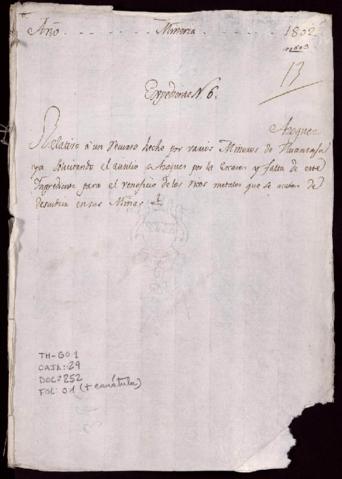 Año . . . . . . . . Minería . . . . . . . . 1802
13
Expediente N. 6.
Azogues
Relativo a un Recurso hecho por varios Mineros de Huantaja
ya solicitando el auxilio de Azogues por la escasez y falta de este
Ingrediente para el veneficio de los ricos metales que se acaban de
descubrir en sus Minas
TH-GO 1
CAJA: 29
DOC: 252
FOL: 01 (+ carátula)